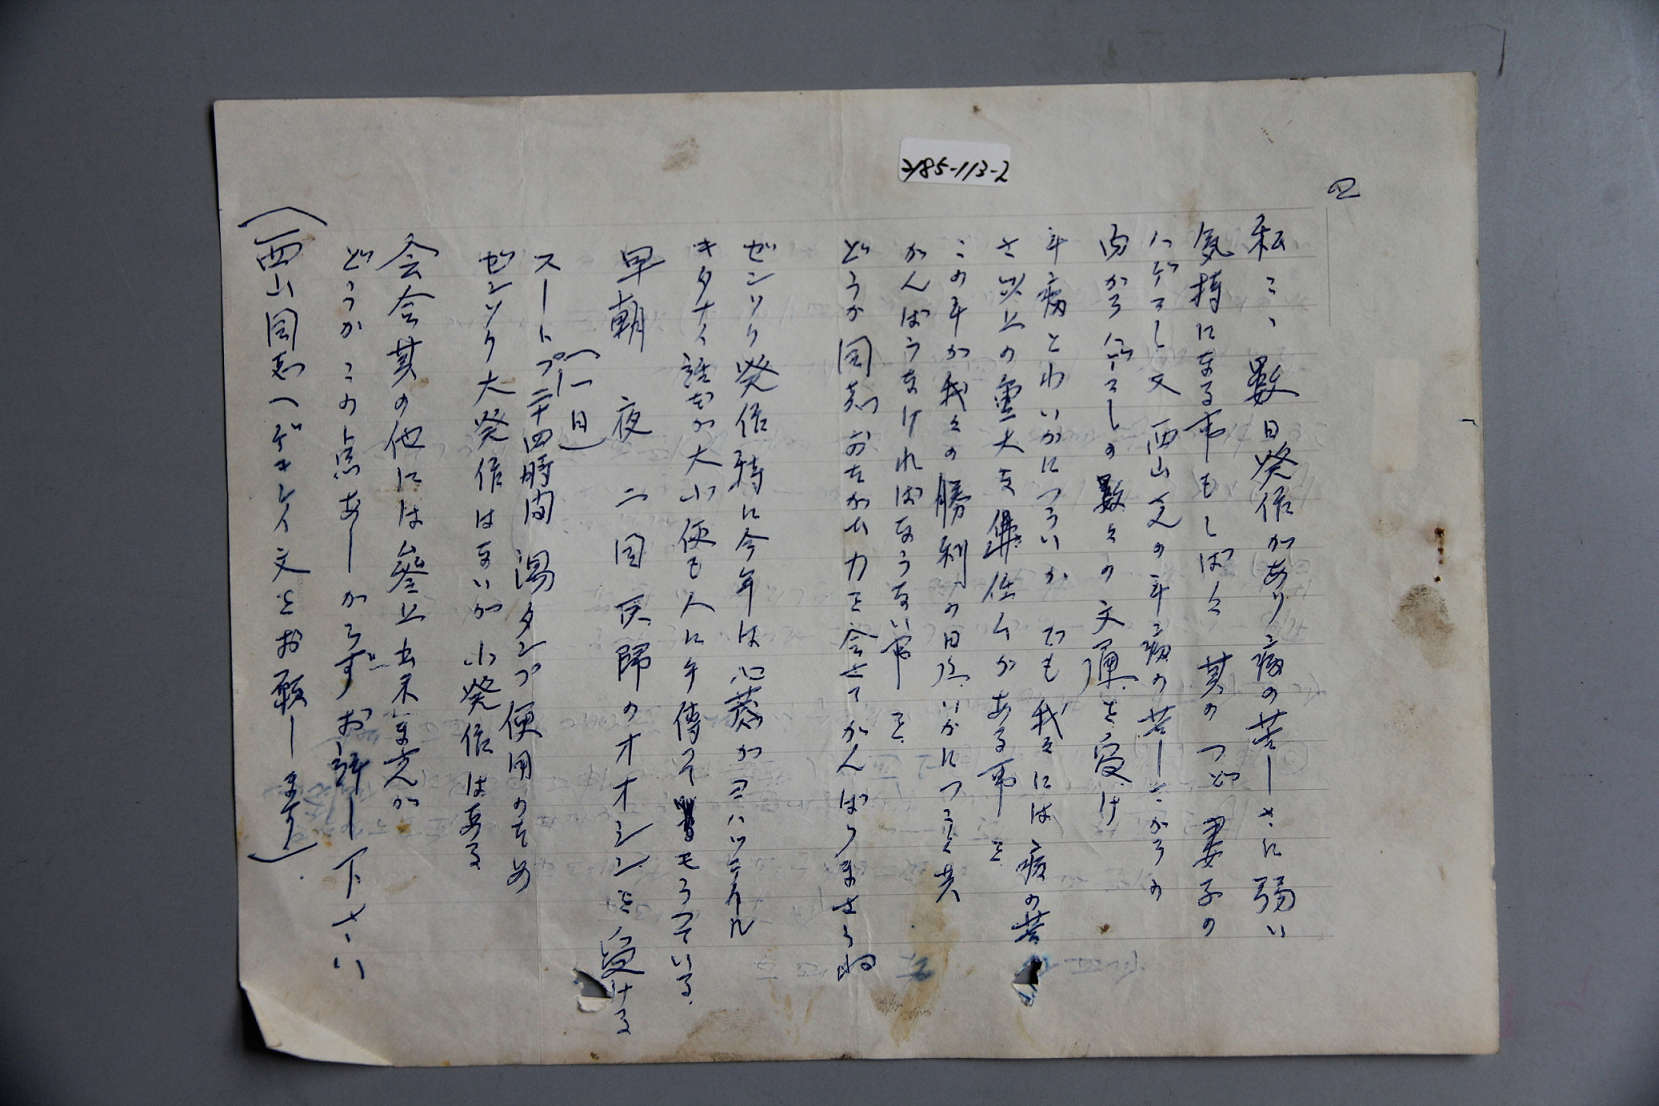 2185-113-2
四
私こゝ数日発作があり病の苦しさに弱い
気持になる事もしばしば其のつど妻子の
ハゲマし又西山兄の斗病の苦しさからの
内からハゲマしの数々の文通を受け
斗病とわいかにつらいか でも我々には病の苦
さ以上の重大な責任ムがある事を
この斗が我々の勝利の日迄いかにつらく共
がんばらなければならない事を
どうか同志おたがい力を合せてがんばりませうね
ゼンソク発作特に今年は心蔵がヨハッテイル
キタナイ話だが大小便も人に手傳ってもらっている
早朝 夜 二回 医師のオオシンを受ける
(一日)
ストーブ二十四時間 湯タンプ使用のため
ゼンソク大発作はないが小発作はある
会合其の他には参上出来ませんが
どうかこの点あしからずお許し下さい
(西山同志へゲキレイ文をお願します)